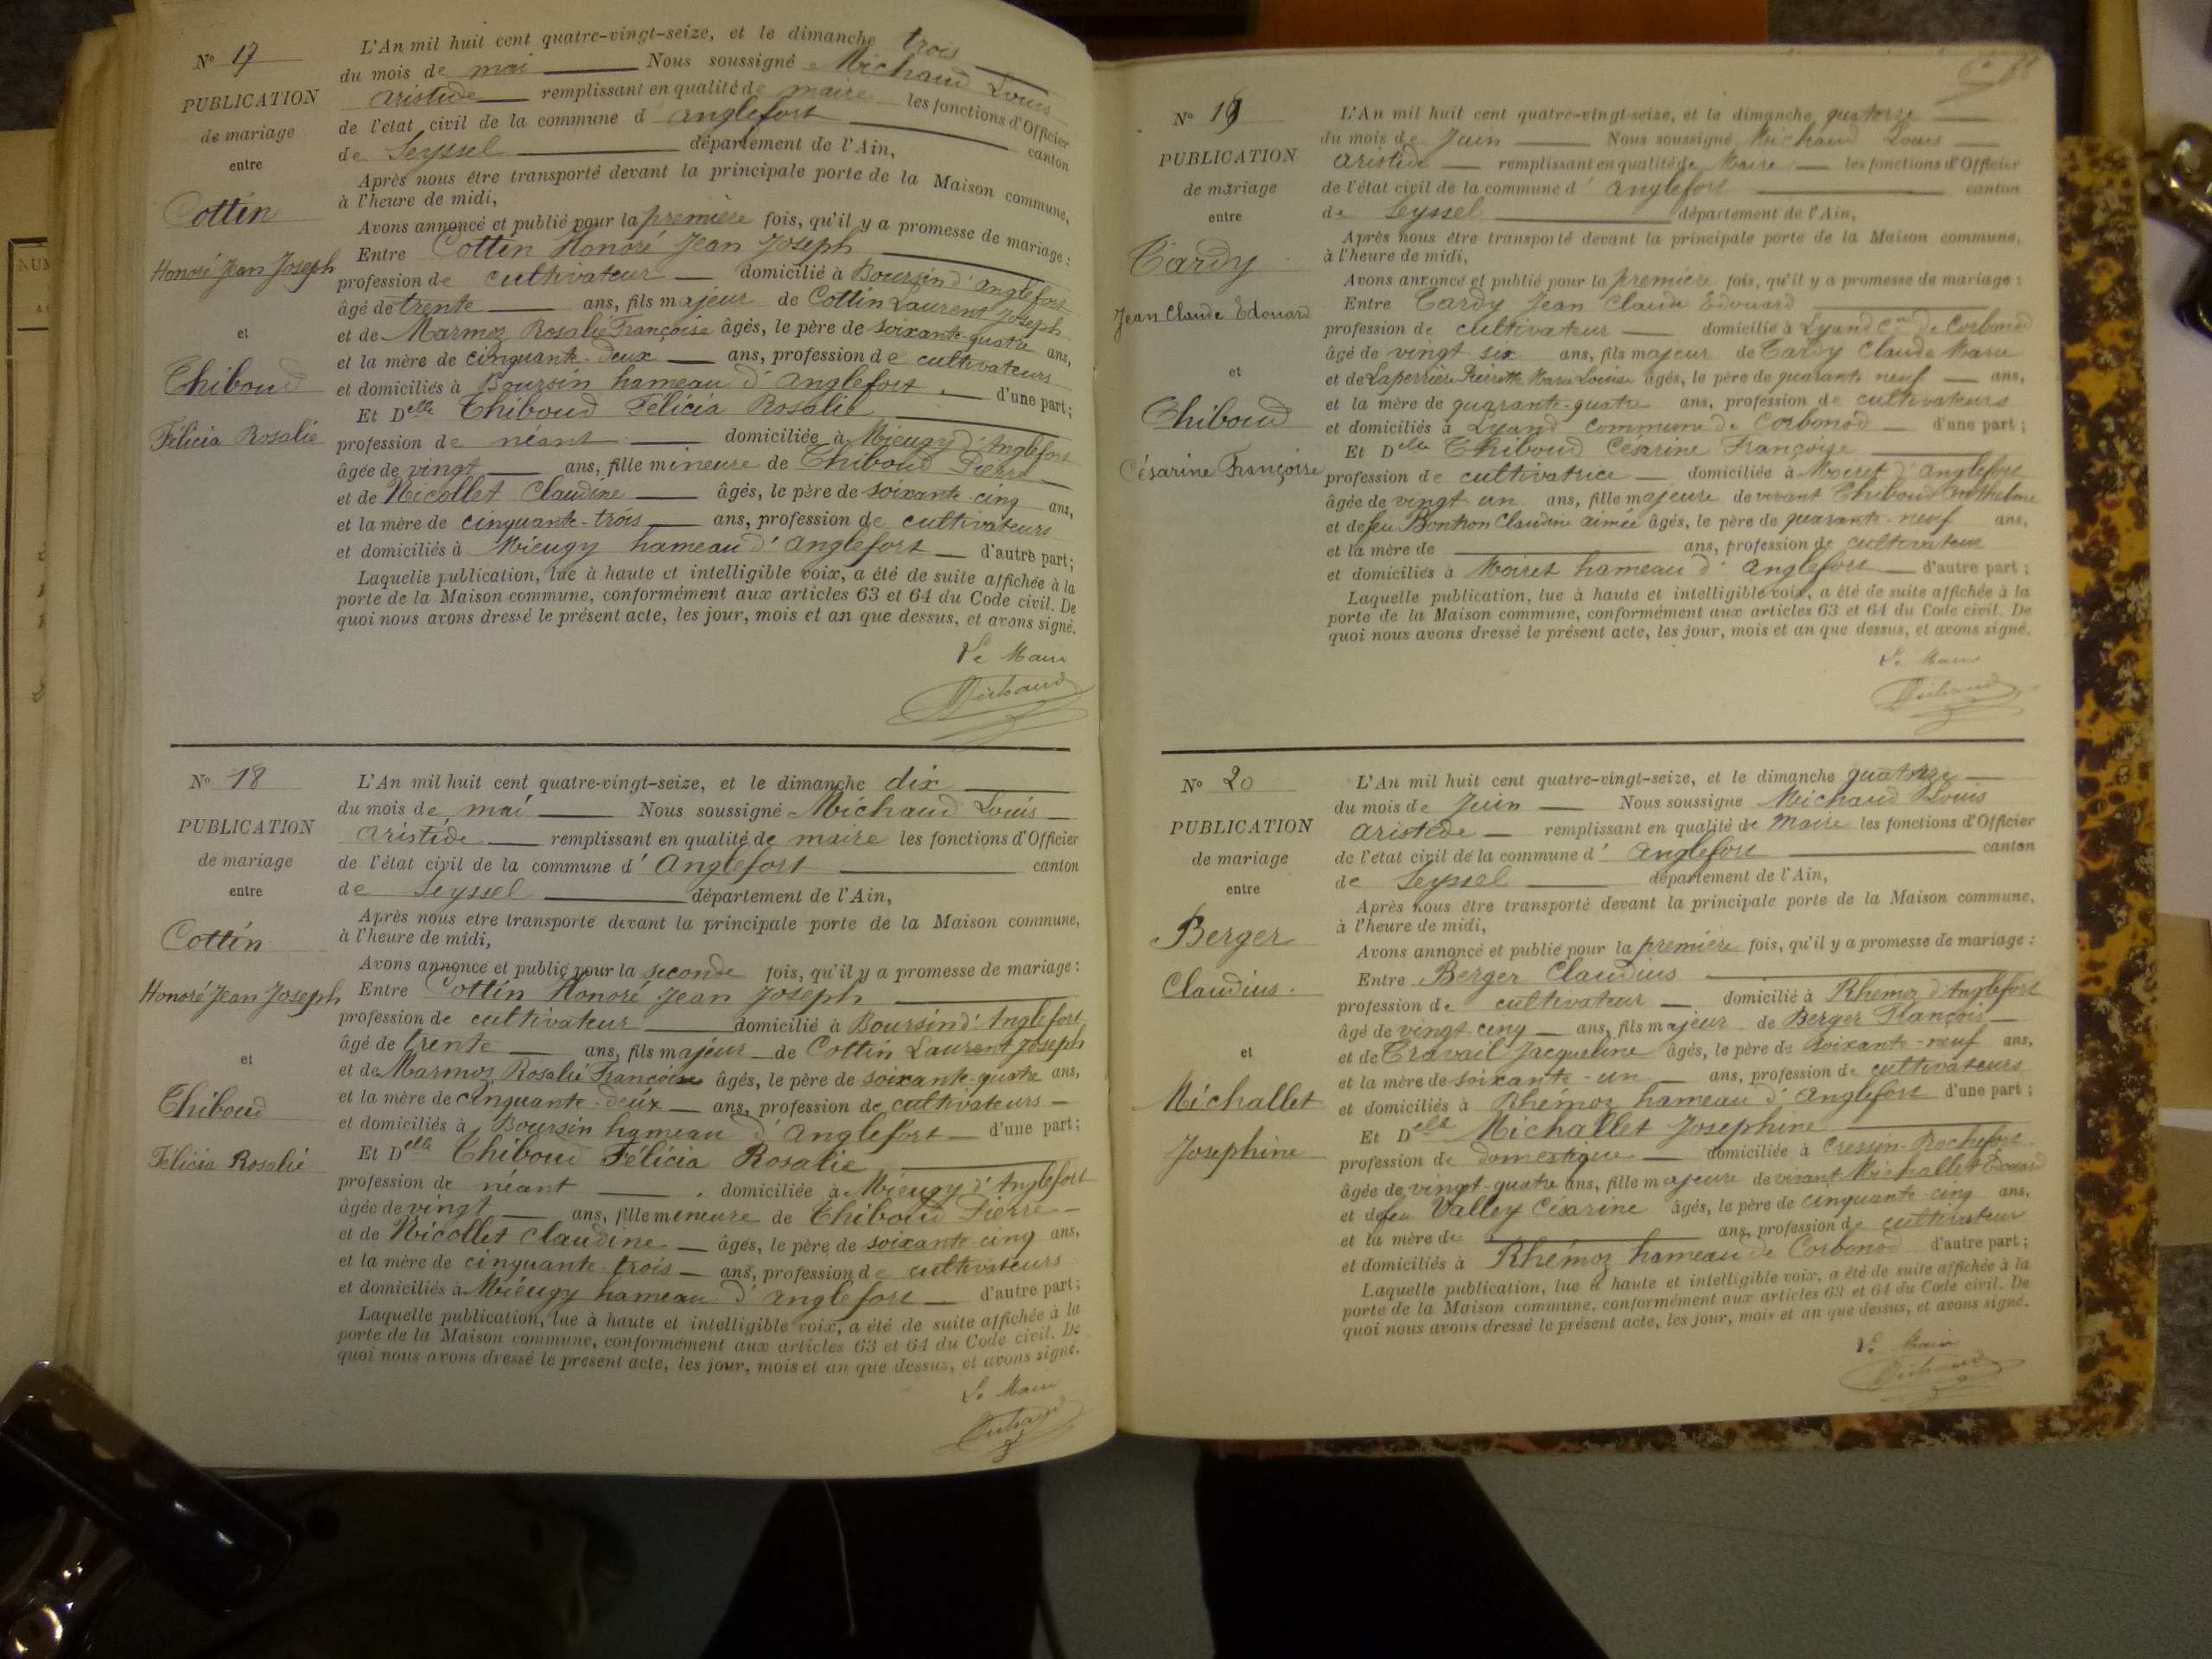 Nº 17
PUBLICATION
de mariage
entre
Cottin
Honoré Jean Joseph
et
Thiboud
Félicia Rosalie
L'An mil huit cent quatre-vingt-seize, et le dimanche trois
du mois de mai Nous soussigné Michaud Louis
aristide remplissant en qualité de maire les fonctions d'Officier
de l'état civil de la commune d'anglefort canton
de Seyssel département de l'Ain,
Après nous être transporté devant la principale porte de la Maison commune,
à l'heure de midi,
Avons annoncé et publié pour la première fois, qu'il y a promesse de mariage :
Entre Cottin Honoré Jean Joseph
profession de cultivateur domicilié à Boursin d'anglefort
âgé de trente ans, fils majeur de Cottin Laurent Joseph
et de Marmoz Rosalie Françoise âgés, le père de soixante-quatre ans,
et la mère de cinquante-deux ans, profession de cultivateurs
et domiciliés à Boursin hameau d'anglefort d'une part;
Et Delle Thiboud Félicia Rosalie
profession de néant domiciliée à Mieugy d'Anglefort
âgée de vingt ans, fille mineure de Thiboud Pierre
et de Nicollet Claudine âgés, le père de soixante-cinq ans,
et la mère de cinquante-trois ans, profession de cultivateurs
et domiciliés à Mieugy hameau d'anglefort d'autre part;
Laquelle publication, lue à haute et intelligible voix, a été de suite affichée à la
porte de la Maison commune, conformément aux articles 63 et 64 du Code civil. De
quoi nous avons dressé le présent acte, les jour, mois et an que dessus, et avons signé.
Le Maire
Michaud
Nº 18
PUBLICATION
de mariage
entre
Cottin
Honoré Jean Joseph
et
Thiboud
Félicia Rosalie
L'An mil huit cent quatre-vingt-seize, et le dimanche dix
du mois de mai Nous soussigné Michaud Louis
aristide remplissant en qualité de maire les fonctions d'Officier
de l'état civil de la commune d'Anglefort canton
de Seyssel département de l'Ain,
Après nous être transporté devant la principale porte de la Maison commune,
à l'heure de midi,
Avons annoncé et publié pour la seconde fois, qu'il y a promesse de mariage :
Entre Cottin Honoré Jean Joseph
profession de cultivateur domicilié à Boursin d'Anglefort
âgé de trente ans, fils majeur de Cottin Laurent Joseph
et de Marmoz Rosalie Françoise âgés, le père de soixante-quatre ans,
et la mère de cinquante-deux ans, profession de cultivateurs
et domiciliés à Boursin hameau d'anglefort d'une part;
Et Delle Thiboud Félicia Rosalie
profession de néant domiciliée à Mieugy d'Anglefort
âgée de vingt ans, fille mineure de Thiboud Pierre
et de Nicollet Claudine âgés, le père de soixante-cinq ans,
et la mère de cinquante-trois ans, profession de cultivateurs
et domiciliés à Mieugy hameau d'anglefort d'autre part;
Laquelle publication, lue à haute et intelligible voix, a été de suite affichée à la
porte de la Maison commune, conformément aux articles 63 et 64 du Code civil. De
quoi nous avons dressé le présent acte, les jour, mois et an que dessus, et avons signé.
Le Maire
Michaud
Nº 19
PUBLICATION
de mariage
entre
Tardy
Jean Claude Edouard
et
Thiboud
Césarine Françoise
L'An mil huit cent quatre-vingt-seize, et le dimanche quatorze
du mois de Juin Nous soussigné Michaud Louis
aristide remplissant en qualité de Maire les fonctions d'Officier
de l'état civil de la commune d'anglefort canton
de Seyssel département de l'Ain,
Après nous être transporté devant la principale porte de la Maison commune,
à l'heure de midi,
Avons annoncé et publié pour la première fois, qu'il y a promesse de mariage :
Entre Tardy Jean Claude Edouard
profession de cultivateur domicilié à Lyand Cne de Corbonod
âgé de vingt six ans, fils majeur de Tardy Claude Marie
et de Laperrière Pierrette Marie Louise âgés, le père de quarante neuf ans,
et la mère de quarante-quatre ans, profession de cultivateurs
et domiciliés à Lyand commune de Corbonod d'une part;
Et Delle Thiboud Césarine Françoise
profession de cultivatrice domiciliée à Moiret d'anglefort
âgée de vingt un ans, fille majeure de vivant Thiboud Anthelme
et de feu Bontron Claudine aimée âgés, le père de quarante-neuf ans,
et la mère de ans, profession de cultivateur
et domiciliés à Moiret hameau d'anglefort d'autre part;
Laquelle publication, lue à haute et intelligible voix, a été de suite affichée à la
porte de la Maison commune, conformément aux articles 63 et 64 du Code civil. De
quoi nous avons dressé le présent acte, les jour, mois et an que dessus, et avons signé.
Le Maire
Michaud
Nº 20
PUBLICATION
de mariage
entre
Berger
Claudius.
et
Michallet
Josephine
L'An mil huit cent quatre-vingt-seize, et le dimanche quatorze
du mois de Juin Nous soussigné Michaud Louis
aristide remplissant en qualité de Maire les fonctions d'Officier
de l'état civil de la commune d'anglefort canton
de Seyssel département de l'Ain,
Après nous être transporté devant la principale porte de la Maison commune,
à l'heure de midi,
Avons annoncé et publié pour la première fois, qu'il y a promesse de mariage :
Entre Berger Claudius
profession de cultivateur domicilié à Rhemoz d'Anglefort
âgé de vingt-cinq ans, fils majeur de Berger François
et de Travail Jacqueline âgés, le père de soixante-neuf ans,
et la mère de soixante-un ans, profession de cultivateurs
et domiciliés à Rhémoz hameau d'anglefort d'une part;
Et Delle Michallet Josephine
profession de domestique domiciliée à Cressin-Rochefort
âgée de vingt-quatre ans, fille majeure de vivant Michallet Edouard
et de feu Valley Césarine âgés, le père de cinquante-cinq ans,
et la mère de ans, profession de cultivateur
et domiciliés à Rhémoz hameau de Corbonod d'autre part;
Laquelle publication, lue à haute et intelligible voix, a été de suite affichée à la
porte de la Maison commune, conformément aux articles 63 et 64 du Code civil. De
quoi nous avons dressé le présent acte, les jour, mois et an que dessus, et avons signé.
Le Maire
Michaud